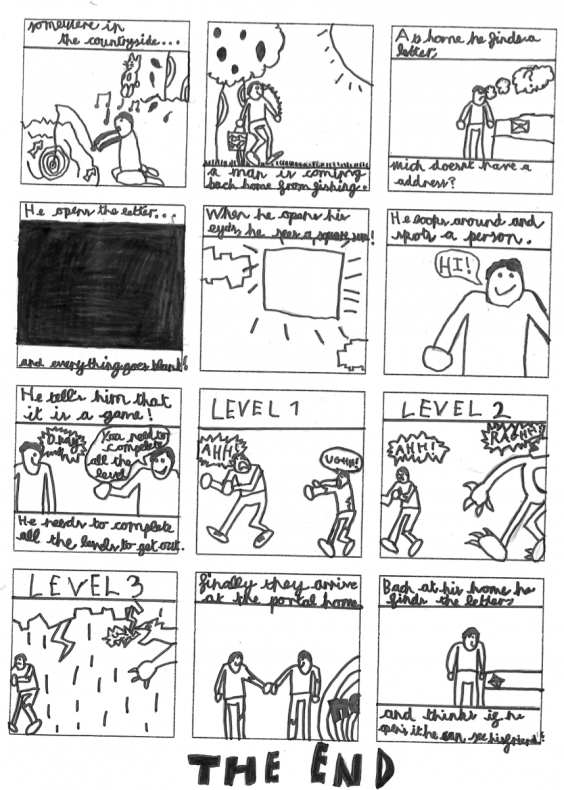 somewhere in
the countryside...
a man is coming
back home from fishing.
At home he finds a
letter,
mich doesn't have a
address?
He opens the letter...
and everything goes blank!
When he opens his
eyes he sees a square sun!
He loops around and
spots a person.
HI!
He tell's him that
it is a game!
You need to
complete
all the
level
He needs to complete
all the levels to get out.
LEVEL 1
AHH!
UGHH!
LEVEL 2
AHH!
RAGHH!
LEVEL 3
finally they arrive
at the portal home
Back at his home he
finds the letters
and thinks if he
opens it he can see his friend!
THE END